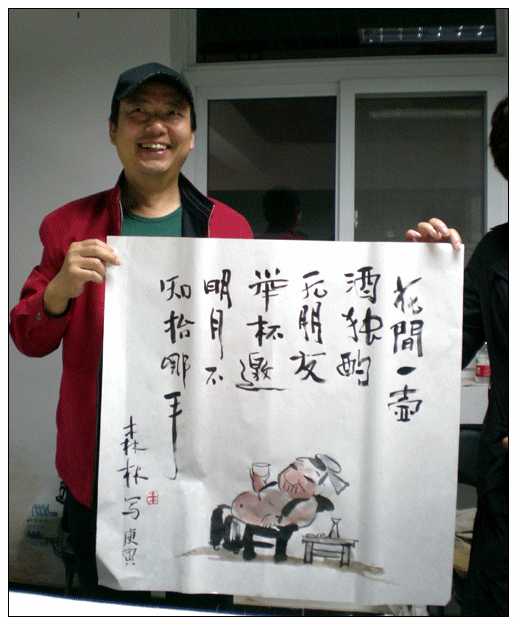 花間一壺
酒独酌
无朋友
举杯邀
明月不
知抬哪
手
森林写庚寅